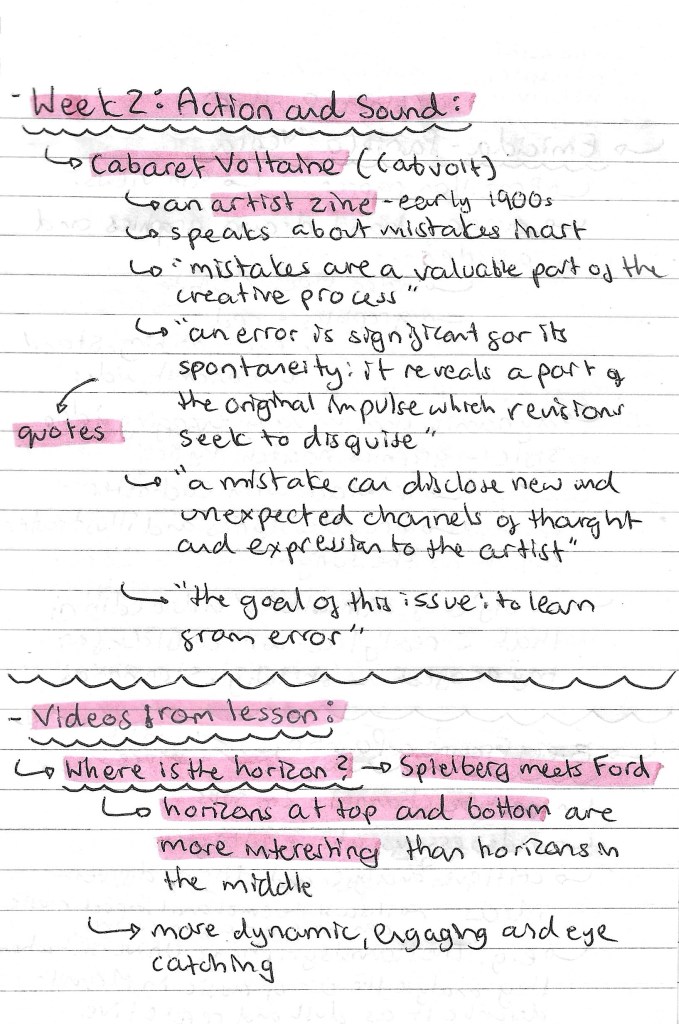 - Week 2: Action and Sound:
↳ Cabaret Voltaire (Cabvolt)
↳ an artist zine - early 1900s
↳ speaks about mistakes in art
↳ "mistakes are a valuable part of the
creative process"
↳ "an error is significant for its
spontaneity: it reveals a part of
the original impulse which revisions
quotes
seek to disguise"
↳ "a mistake can disclose new and
unexpected channels of thought
and expression to the artist"
↳ "the goal of this issue: to learn
from error"
- Videos from lesson:
↳ Where is the horizon? → Spielberg meets Ford
↳ horizons at top and bottom are
more interesting than horizons in
the middle
↳ more dynamic, engaging and eye
catching